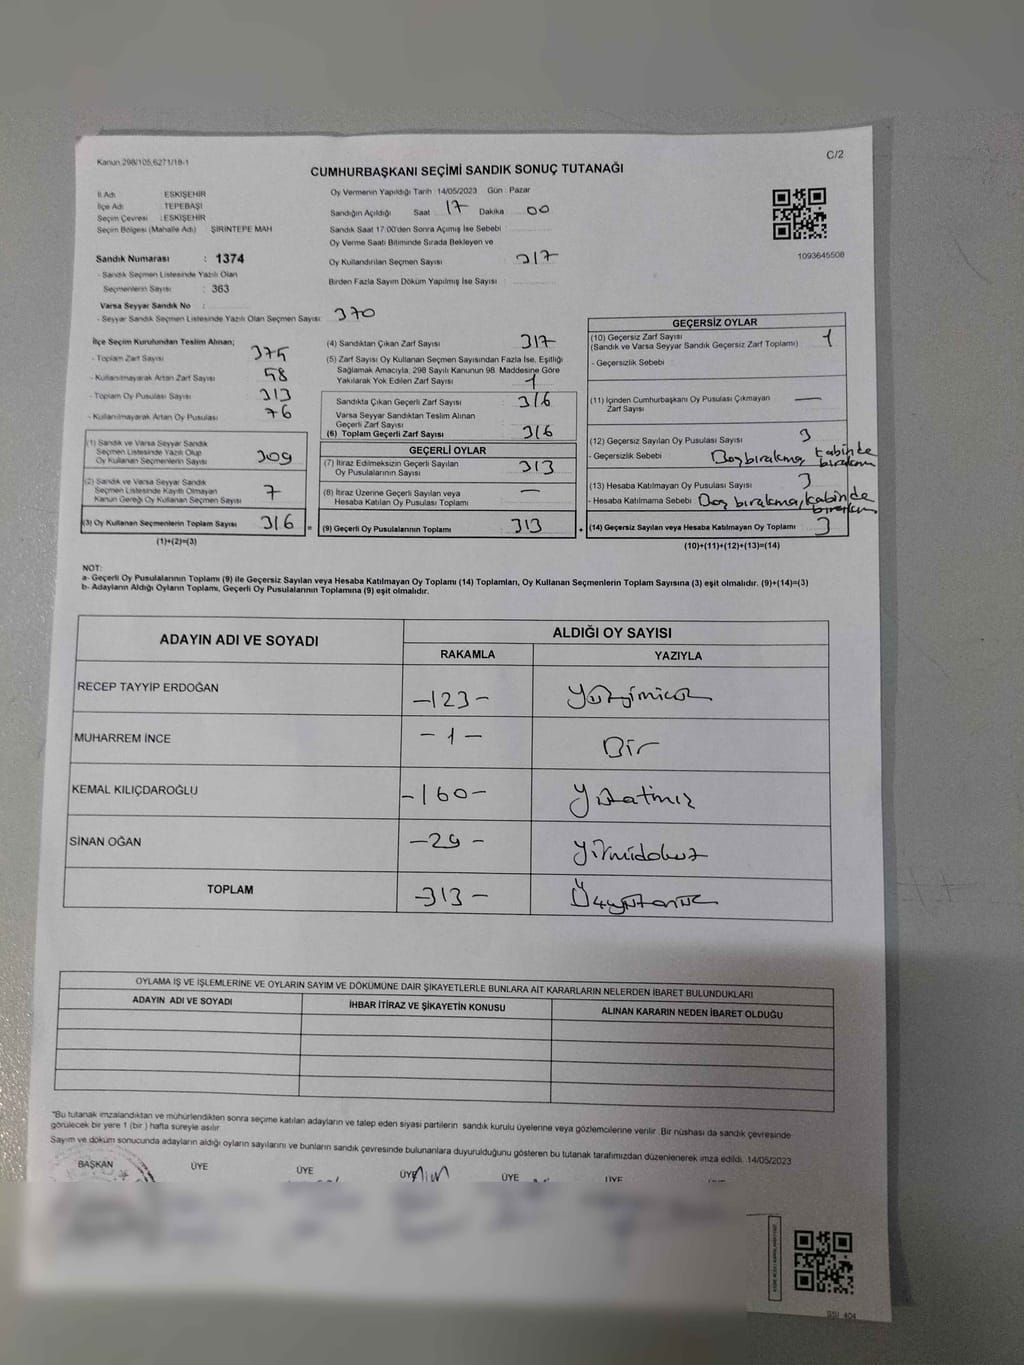 Kanun 298/105,6271/18-1
C/2
CUMHURBAŞKANI SEÇİMİ SANDIK SONUÇ TUTANAĞI
İl Adı : ESKİŞEHİR
İlçe Adı : TEPEBAŞI
Seçim Çevresi : ESKİŞEHİR
Seçim Bölgesi (Mahalle Adı) ŞİRİNTEPE MAH
Sandık Numarası : 1374
- Sandık Seçmen Listesinde Yazılı Olan
Seçmenlerin Sayısı : 363
Varsa Seyyar Sandık No :
- Seyyar Sandık Seçmen Listesinde Yazılı Olan Seçmen Sayısı: 370
Oy Vermenin Yapıldığı Tarih :14/05/2023 Gün : Pazar
Sandığın Açıldığı Saat 17 Dakika 00
Sandık Saat 17:00'den Sonra Açımış İse Sebebi
Oy Verme Saati Bitiminde Sırada Bekleyen ve
Oy Kullandırılan Seçmen Sayısı 317
Birden Fazla Sayım Döküm Yapılmış İse Sayısı :
1093645508
İlçe Seçim Kurulundan Teslim Alınan;
- Toplam Zarf Sayısı 375
- Kullanılmayarak Artan Zarf Sayısı 58
- Toplam Oy Pusulası Sayısı 313
- Kullanılmayarak Artan Oy Pusulası 76
(1) Sandık ve Varsa Seyyar Sandık
Seçmen Listesinde Yazılı Olup
Oy Kullanan Seçmenlerin Sayısı 309
(2) Sandık ve Varsa Seyyar Sandık
Seçmen Listesinde Kayıtlı Olmayan
Kanun Gereği Oy Kullanan Seçmen Sayısı 7
(3) Oy Kullanan Seçmenlerin Toplam Sayısı 316 =
(1)+(2)=(3)
(4) Sandıktan Çıkan Zarf Sayısı 317
(5) Zarf Sayısı Oy Kullanan Seçmen Sayısından Fazla İse, Eşitliği
Sağlamak Amacıyla, 298 Sayılı Kanunun 98. Maddesine Göre
Yakılarak Yok Edilen Zarf Sayısı 1
Sandıkta Çıkan Geçerli Zarf Sayısı 316
Varsa Seyyar Sandıktan Teslim Alınan
Geçerli Zarf Sayısı
(6) Toplam Geçerli Zarf Sayısı 316
GEÇERLİ OYLAR
(7) İtiraz Edilmeksizin Geçerli Sayılan
Oy Pusulalarının Sayısı 313
(8) İtiraz Üzerine Geçerli Sayılan veya
Hesaba Katılan Oy Pusulası Toplamı —
(9) Geçerli Oy Pusulalarının Toplamı 313 +
GEÇERSİZ OYLAR
(10) Geçersiz Zarf Sayısı 1
(Sandık ve Varsa Seyyar Sandık Geçersiz Zarf Toplamı)
- Geçersizlik Sebebi
(11) İçinden Cumhurbaşkanı Oy Pusulası Çıkmayan —
Zarf Sayısı
(12) Geçersiz Sayılan Oy Pusulası Sayısı 3
- Geçersizlik Sebebi Boş bırakma, kabinde
bırakma
(13) Hesaba Katılmayan Oy Pusulası Sayısı 3
- Hesaba Katılmama Sebebi Boş bırakma, kabinde
(14) Geçersiz Sayılan veya Hesaba Katılmayan Oy Toplamı 3
(10)+(11)+(12)+(13)=(14)
NOT:
a- Geçerli Oy Pusulalarının Toplamı (9) ile Geçersiz Sayılan veya Hesaba Katılmayan Oy Toplamı (14) Toplamları, Oy Kullanan Seçmenlerin Toplam Sayısına (3) eşit olmalıdır. (9)+(14)=(3)
b- Adayların Aldığı Oyların Toplamı, Geçerli Oy Pusulalarının Toplamına (9) eşit olmalıdır.
ADAYIN ADI VE SOYADI ALDIĞI OY SAYISI
RAKAMLA YAZIYLA
RECEP TAYYİP ERDOĞAN -123- Yüzyirmiüç
MUHARREM İNCE -1- Bir
KEMAL KILIÇDAROĞLU -160- Yüzatmış
SİNAN OĞAN -29- Yirmidokuz
TOPLAM -313- Üçyüzonüç
OYLAMA İŞ VE İŞLEMLERİNE VE OYLARIN SAYIM VE DÖKÜMÜNE DAİR ŞİKAYETLERLE BUNLARA AİT KARARLARIN NELERDEN İBARET BULUNDUKLARI
ADAYIN ADI VE SOYADI İHBAR İTİRAZ VE ŞİKAYETİN KONUSU ALINAN KARARIN NEDEN İBARET OLDUĞU
"Bu tutanak imzalandıktan ve mühürlendikten sonra seçime katılan adayların ve talep eden siyasi partilerin sandık kurulu üyelerine veya gözlemcilerine verilir. Bir nüshası da sandık çevresinde
görülecek bir yere 1 (bir ) hafta süreyle asılır.
Sayım ve döküm sonucunda adayların aldığı oyların sayılarını ve bunların sandık çevresinde bulunanlara duyurulduğunu gösteren bu tutanak tarafımızdan düzenlenerek imza edildi. 14/05/2023
BAŞKAN ÜYE ÜYE ÜYE ÜYE ÜYE